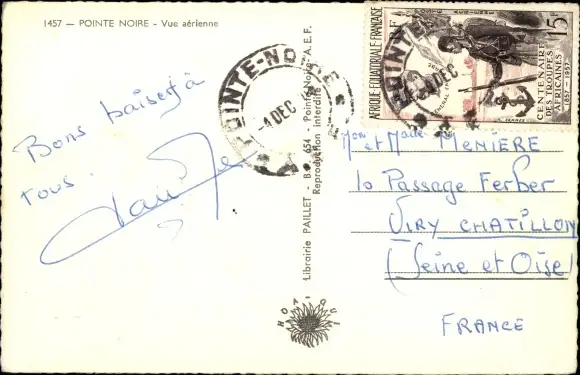 1457 — POINTE NOIRE - Vue aérienne
Bons baisers à
tous.
POINTE-NOIRE
4 DEC
Librairie PAILLET - B.P. 654 - Pointe-Noire A.E.F.
Reproduction interdite
HOA-QUI
AFRIQUE-EQUATORIALE-FRANÇAISE
15F
CENTENAIRE
DES TROUPES
AFRICAINES
1857-1957
POINTE
4 DEC
Mon et Made MENIÈRE
10 Passage Ferber
VIRY CHATILLON
(Seine et Oise)
FRANCE